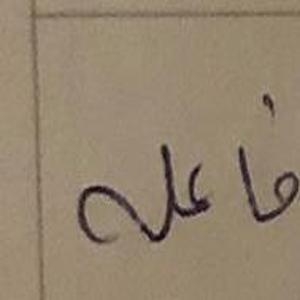 فا على